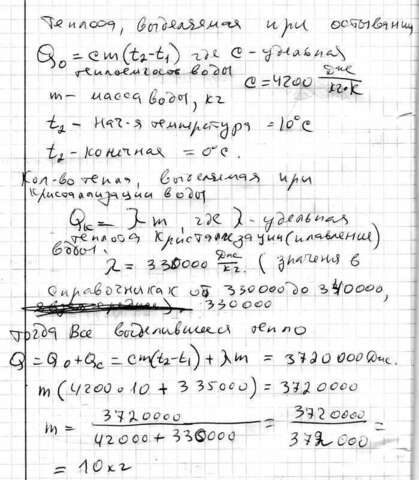 Теплота, выделяемая при остывании
Q₀ = cm(t₂-t₁) где c - удельная
теплоемкость воды c = 4200 Дж/кг·К
m - масса воды, кг
t₂ - нач-я температура = 10°C
t₂ - конечная = 0°C.
Кол-во тепла, выделяемая при
кристаллизации воды
Qк = λm, где λ - удельная
теплота кристаллизации (плавление)
воды.
λ = 330000 Дж/кг. (значения в
справочниках от 330000 до 340000,
330000
тогда все выделившееся тепло
Q = Q₀ + Qc = cm(t₂-t₁) + λm = 3720000 Дж.
m(4200·10 + 335000) = 3720000
m = 3720000 / 42000 + 330000 = 3720000 / 372000 =
= 10 кг